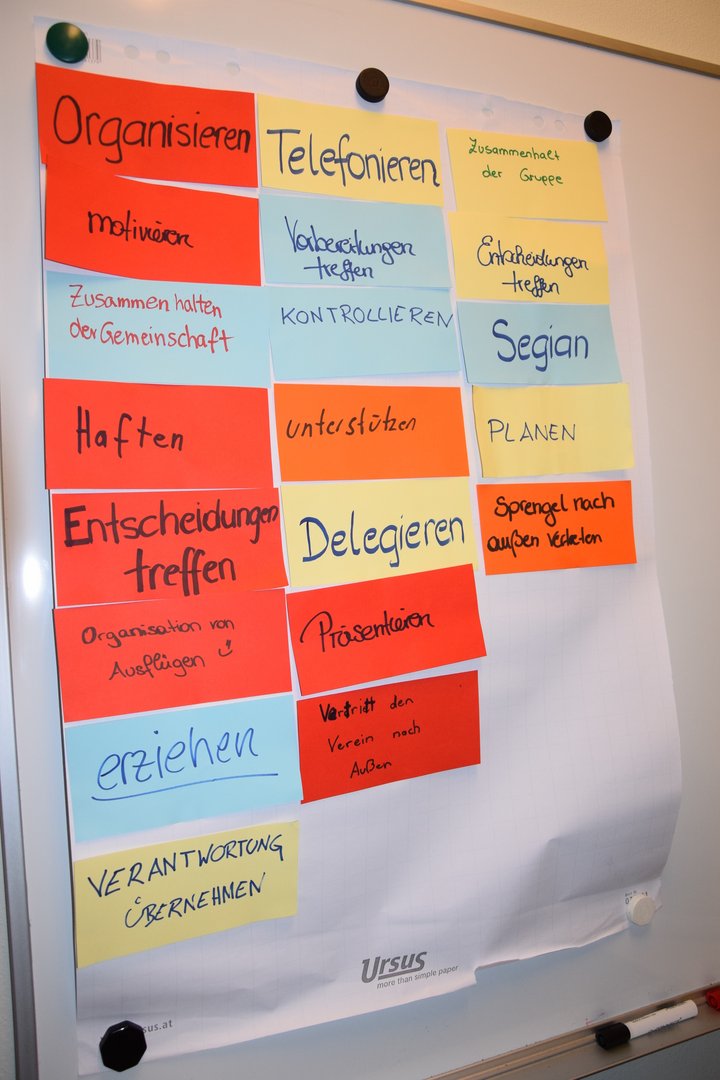 Organisieren
motivieren
Zusammen halten
der Gemeinschaft
Haften
Entscheidungen
treffen
Organisation von
Ausflügen
erziehen
VERANTWORTUNG
ÜBERNEHMEN
Telefonieren
Vorbereitungen
treffen
KONTROLLIEREN
unterstützen
Delegieren
Präsentieren
Vertritt den
Verein nach
Außen
Zusammenhalt
der Gruppe
Entscheidungen
treffen
Segian
PLANEN
Sprengel nach
außen vertreten
Ursus
more than simple paper
sus.at